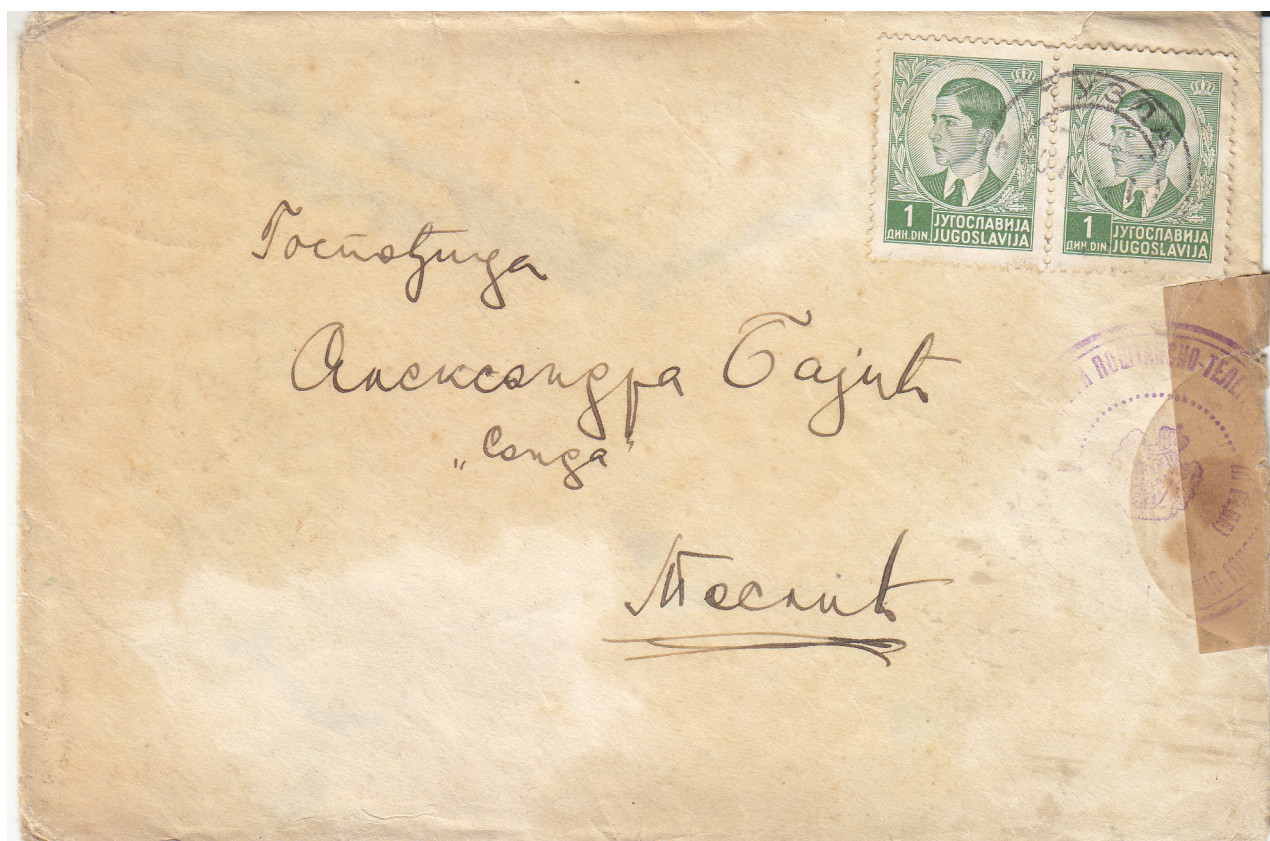 1
ДИН. DIN.
ЈУГОСЛАВИЈА
JUGOSLAVIJA
1
ДИН. DIN.
ЈУГОСЛАВИЈА
JUGOSLAVIJA
УЗЛА
Госпођица
Александра Бајић
„Санда"
Теслић
ПОШТАНСКО-ТЕЛЕ